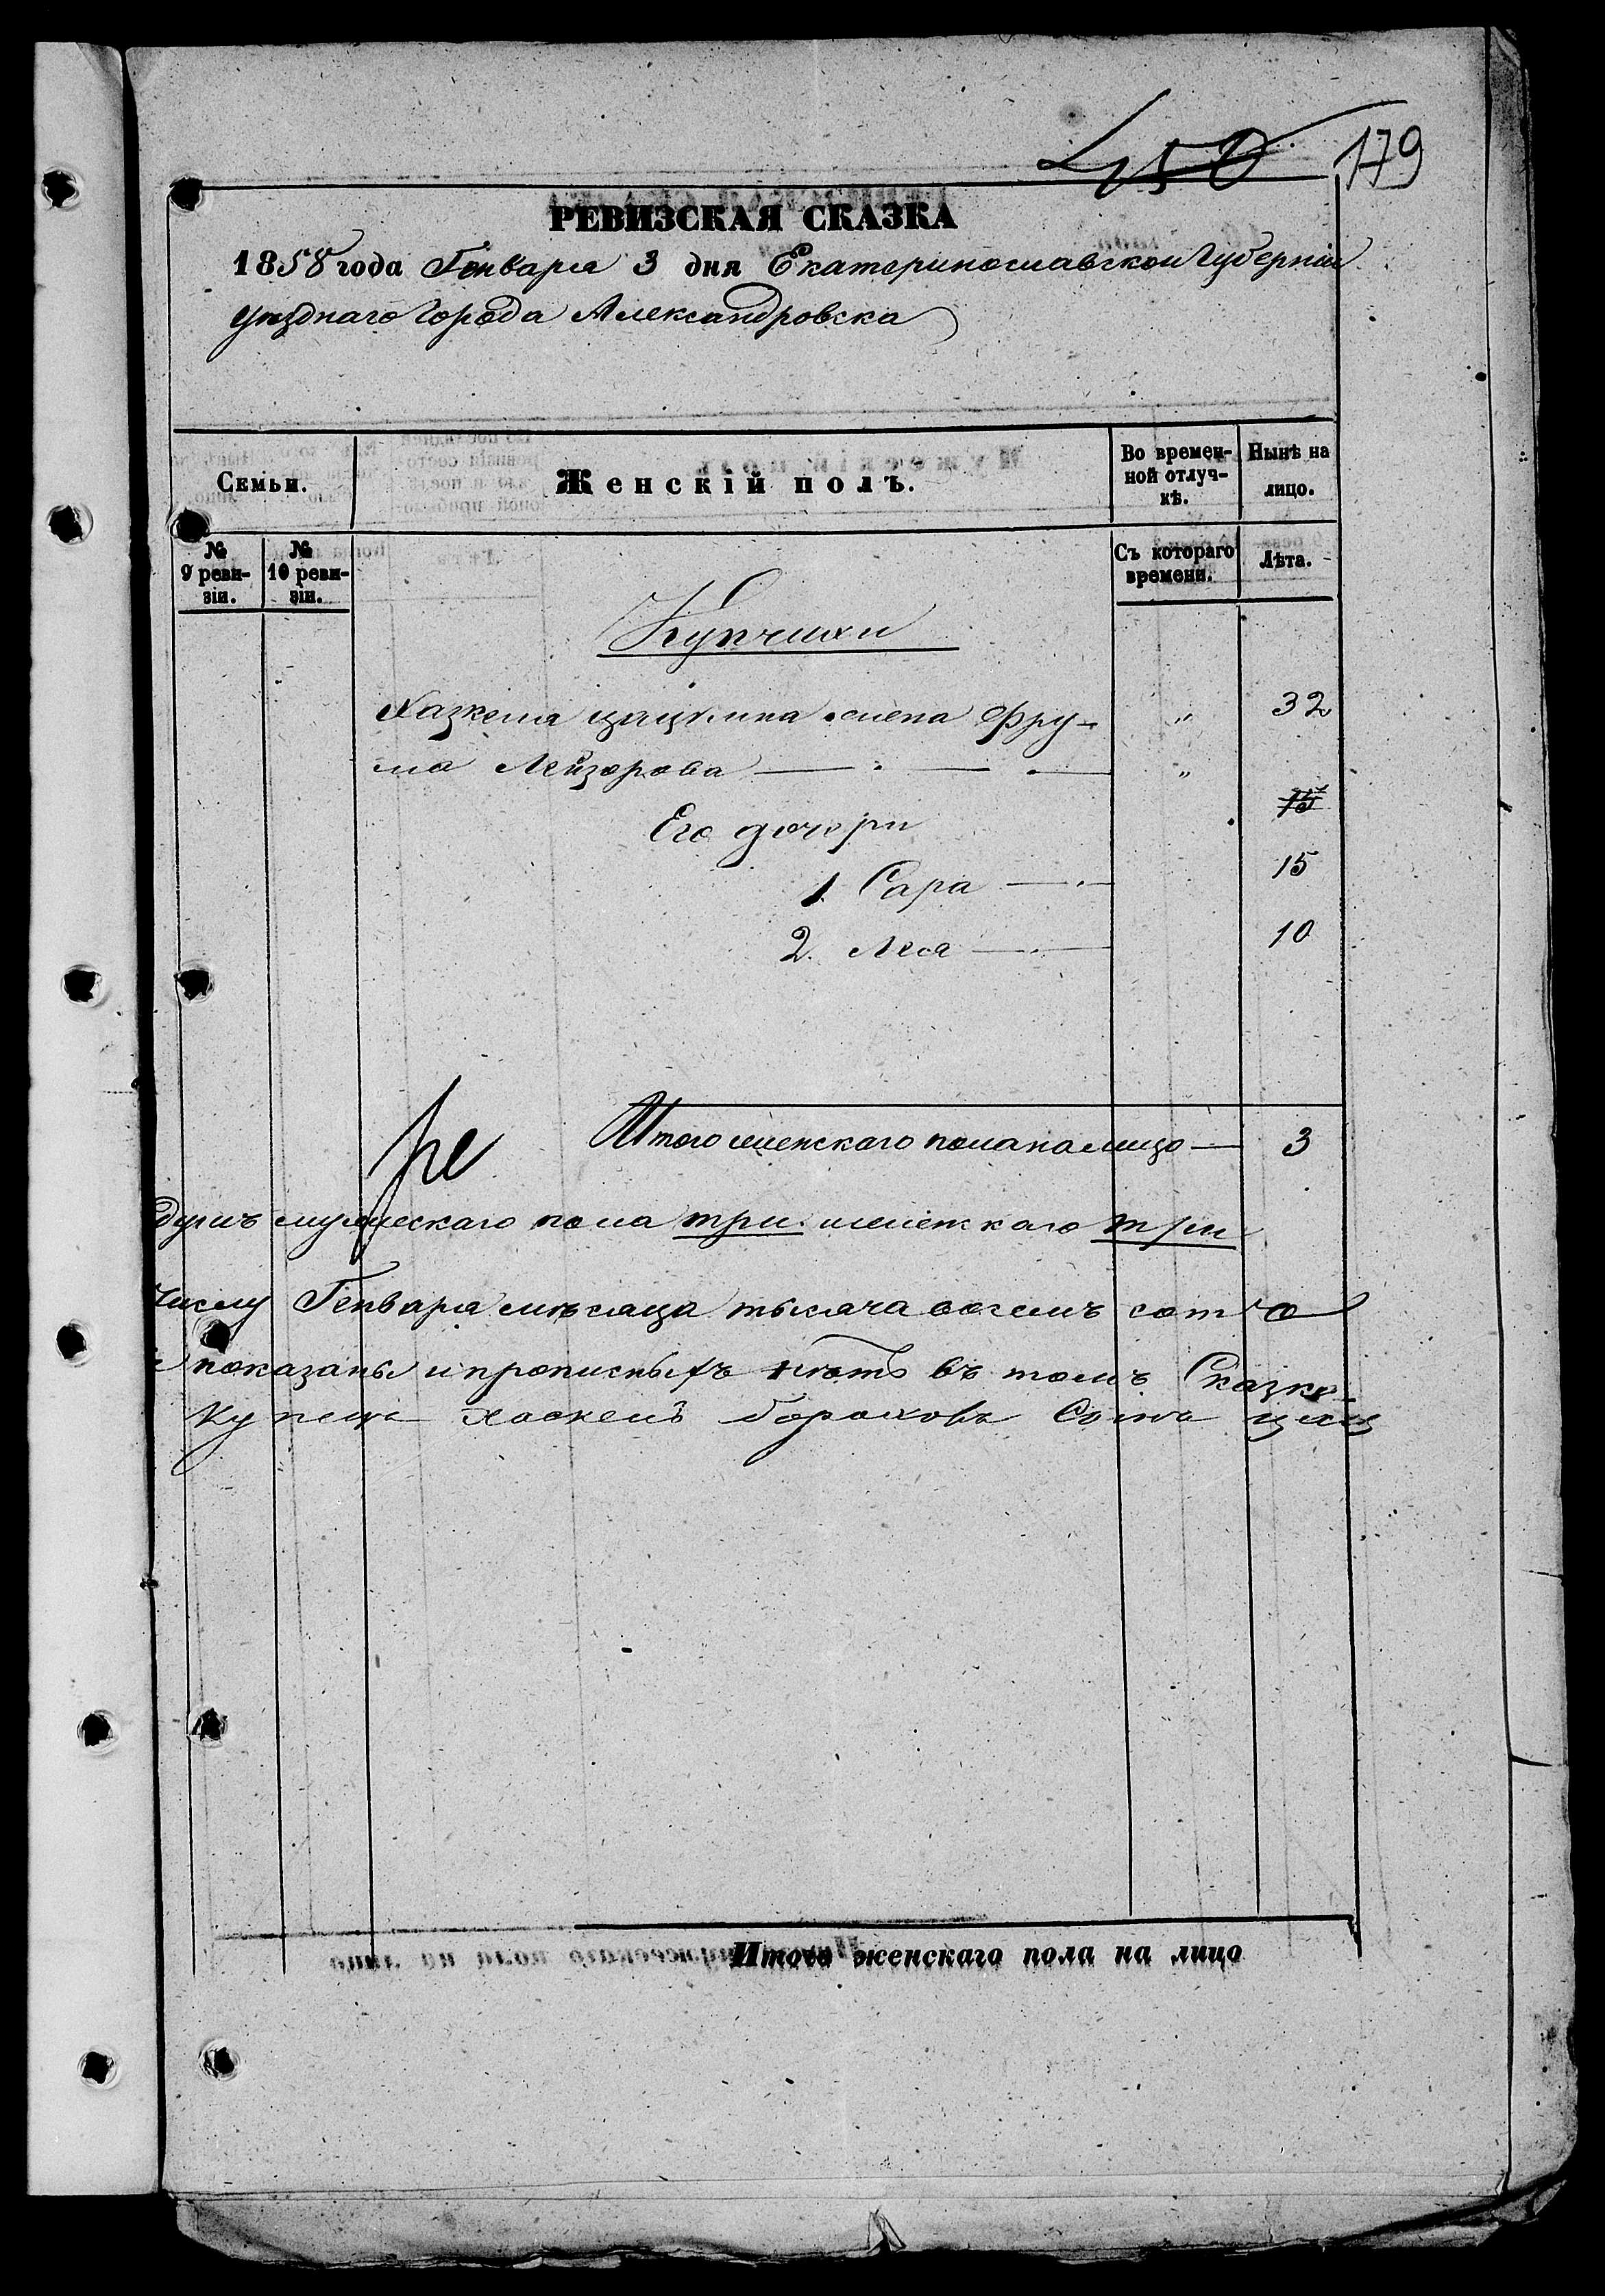 450 179
РЕВИЗСКАЯ СКАЗКА
1858 года Генваря 3 дня Екатеринославской Губерніи
уѣзднаго Города Александровска
Семьи.
Женскій полъ.
Во времен-
ной отлуч-
кѣ.
Нынѣ на
лицо.
№
9 реви-
зіи.
№
10 реви-
зіи.
Съ котораго
времени.
Лѣта.
Купчихи
Хазкеля жена Фру- " 32
ма Лейзорова "
15
Его дочери
1. Сара 15
2. Лея 10
Итого женскаго пола на лицо 3
душъ мужескаго пола три. женскаго три
числу Генваря мѣсяца тысяча восемъ сотъ
показаны и прописныхъ нѣтъ въ томъ Сказке
Купецъ Хаскель Бораховъ Сынъ
Итого женскаго пола на лицо